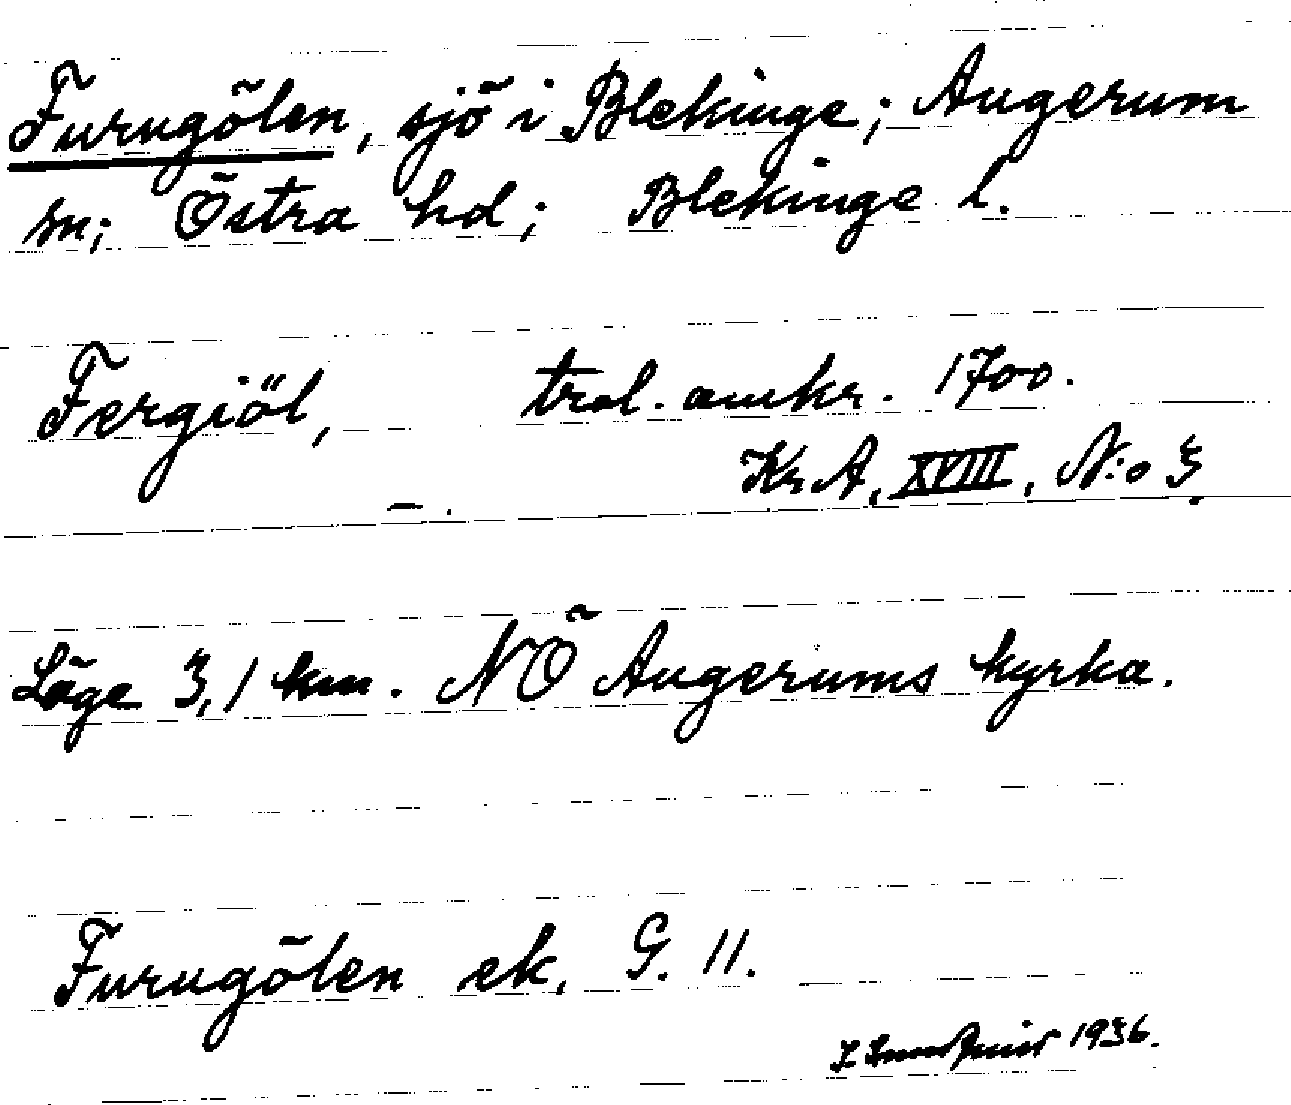 Furugölen, sjö i Blekinge; Augerum
sn; Östra hd; Blekinge l.
Fergiöl, trol. omkr. 1700.
Kr. A, XVIII, N:o 3.
Läge 3,1 km. NÖ Augerums kyrka.
Furugölen ek. G. 11.
1936.